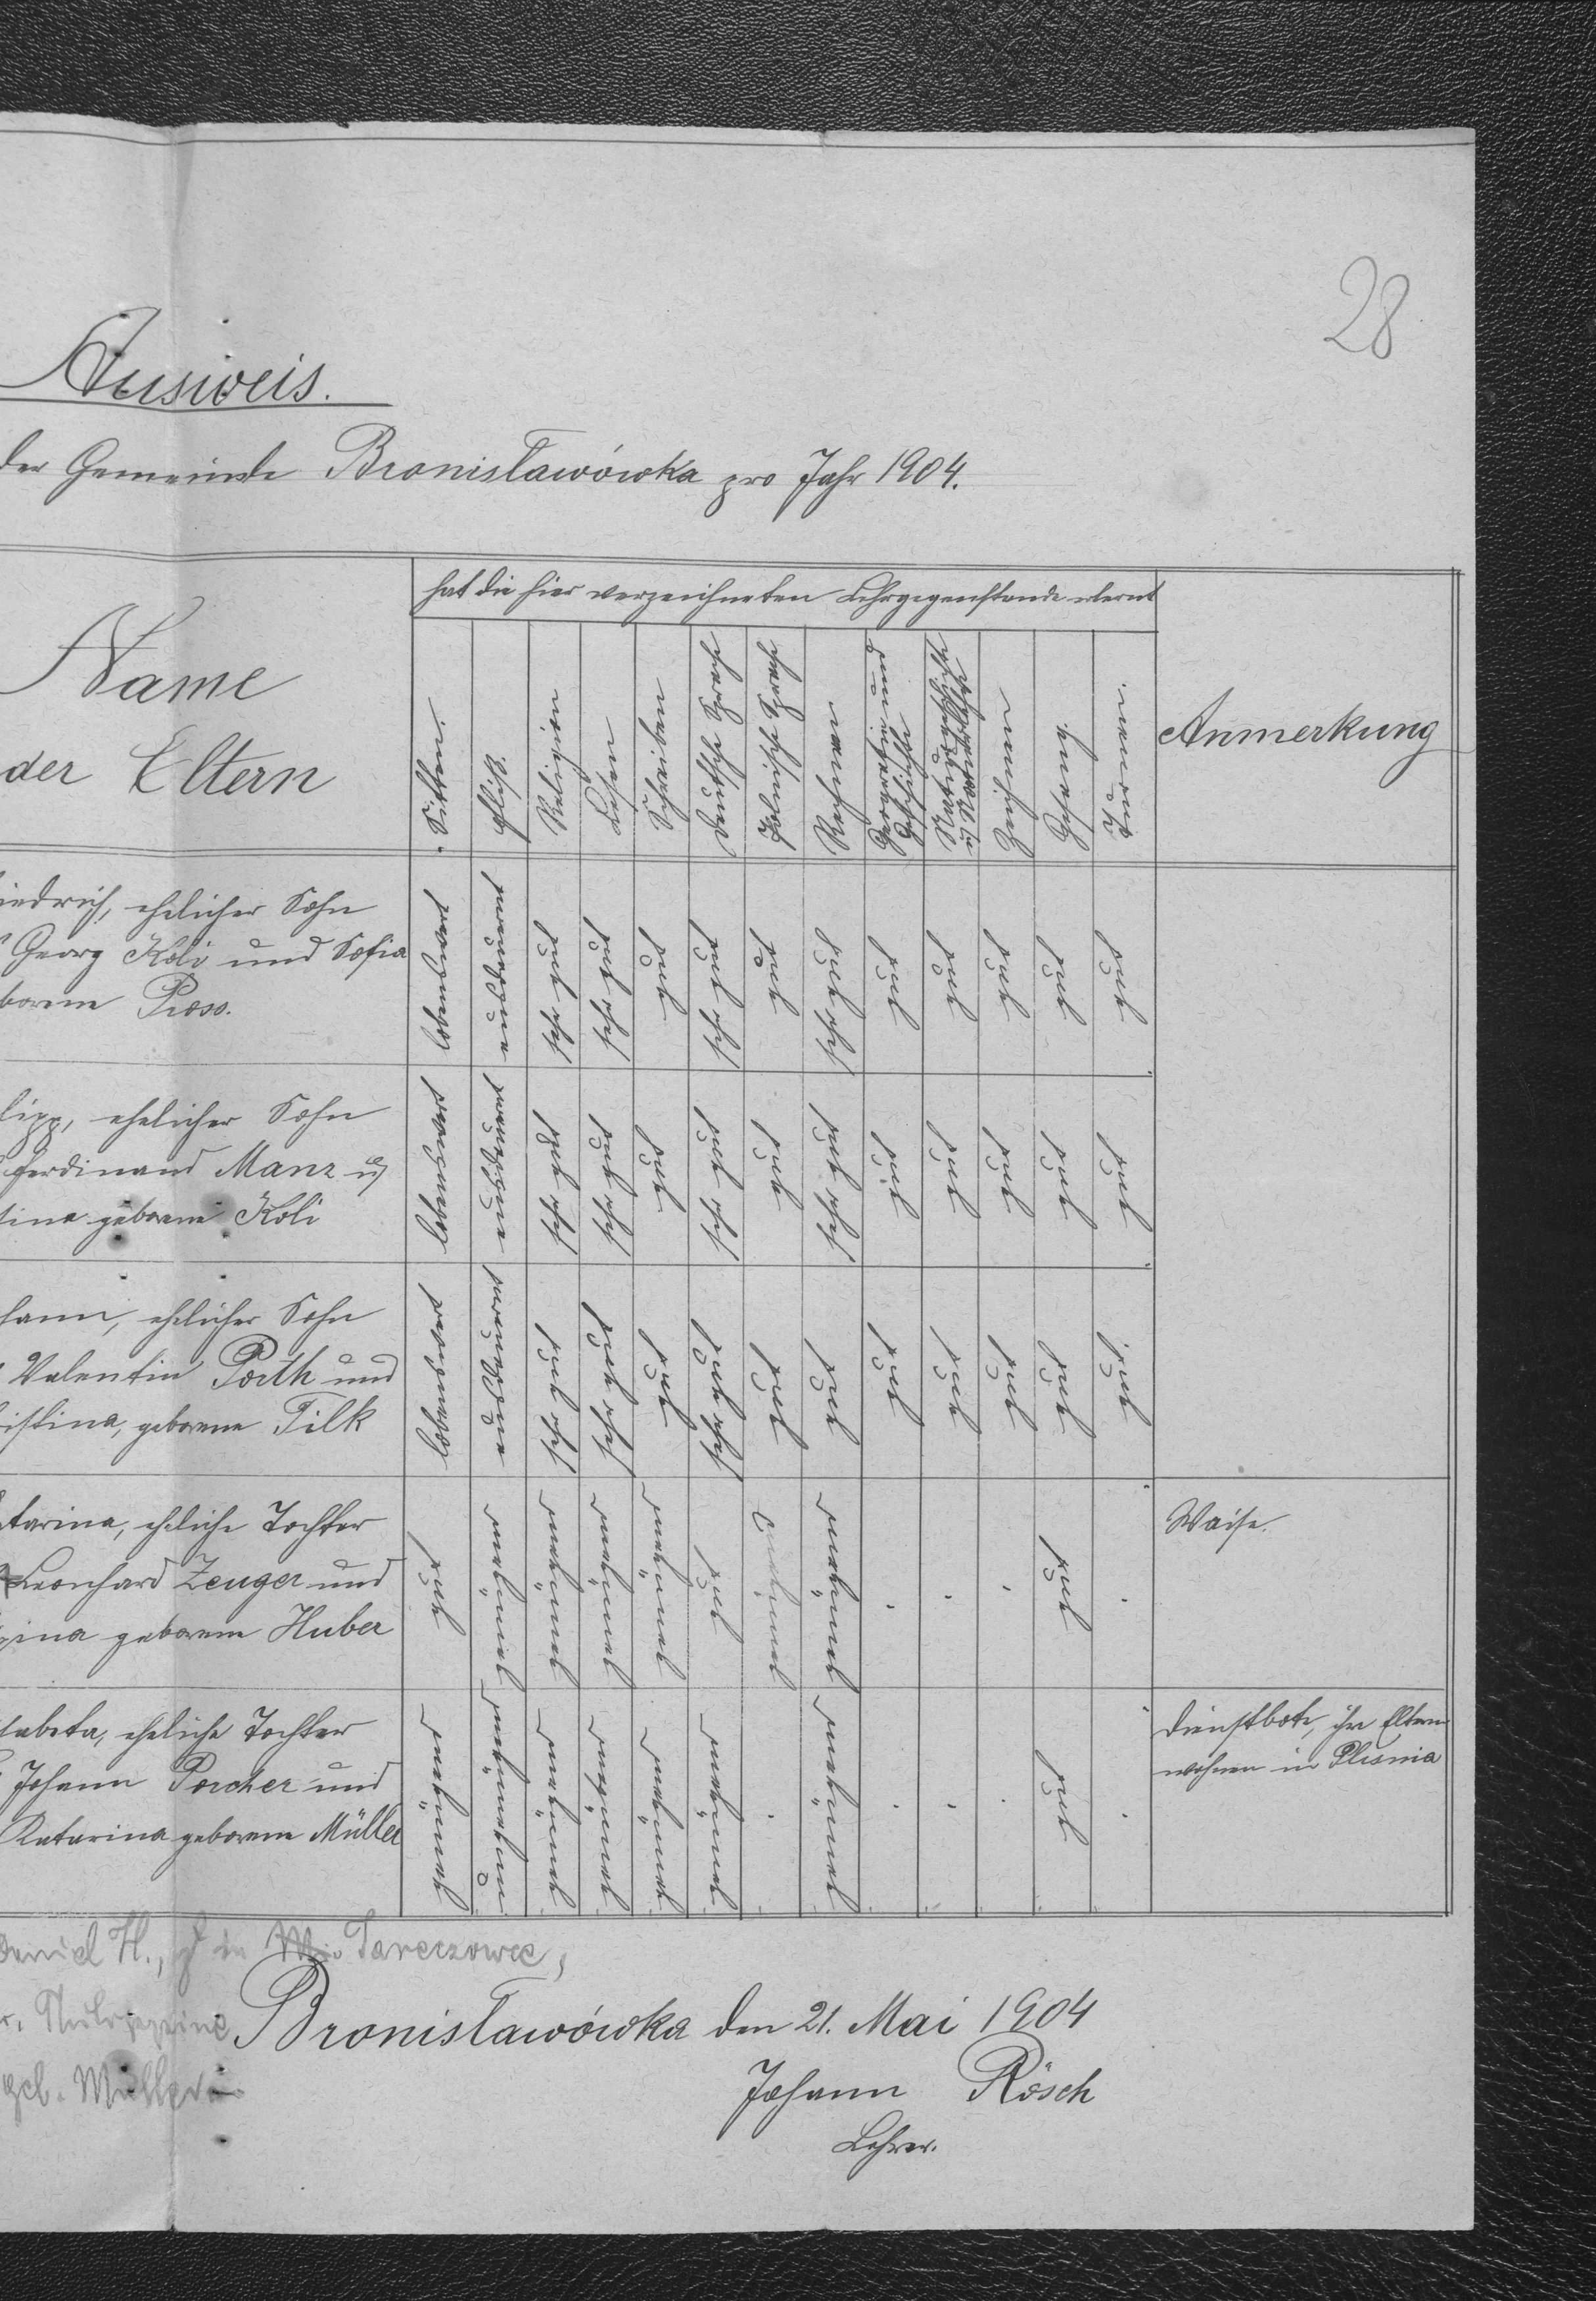 28
Ausweis.
der Gemeinde Bronisławówka pro Jahr 1904.
Name
der Eltern
hat die hier verzeichneten Lehrgegenstande erlernt
Sitten.
Fleiß.
Religion
Lesen
Schreiben
Deutsche Sprache
Polnische Sprache
Rechnen
Geografie und
Geschichte
Naturgeschichte
u. Naturlehre
Zeichnen
Gesang.
Turnen.
Anmerkung
iedrich, ehelicher Sohn
Georg Koli und Sofia
borene Pross.
lobenswert
ausdauernd
sehr gut
sehr gut
gut
sehr gut
gut
sehr gut
gut
gut
gut
gut
gut
lipp, ehelicher Sohn
Ferdinand Manz u.
tina geborene Koli
lobenswert
ausdauernd
sehr gut
sehr gut
gut
sehr gut
gut
sehr gut
gut
gut
gut
gut
gut
hann, ehelicher Sohn
Valentin Porth und
istina, geborene Tilk
lobenswert
ausdauernd
sehr gut
sehr gut
gut
sehr gut
gut
gut
gut
gut
gut
gut
gut
tarina, eheliche Tochter
Leonhard Zeuger und
gina geborene Huber
gut
genügend
genügend
genügend
genügend
gut
genügend
genügend
gut
Waise.
sabeta, eheliche Tochter
Johann Porcher und
Katarina geborene Müller
genügend
ungenügend
genügend
genügend
genügend
genügend
genügend
gut
Dienstbote, ihre Eltern
wohnen in Plisnia
Daniel H., in Tarczowce,
Bronisławówka den 21. Mai 1904
geb. Müller
Johann Rösch
Lehrer.